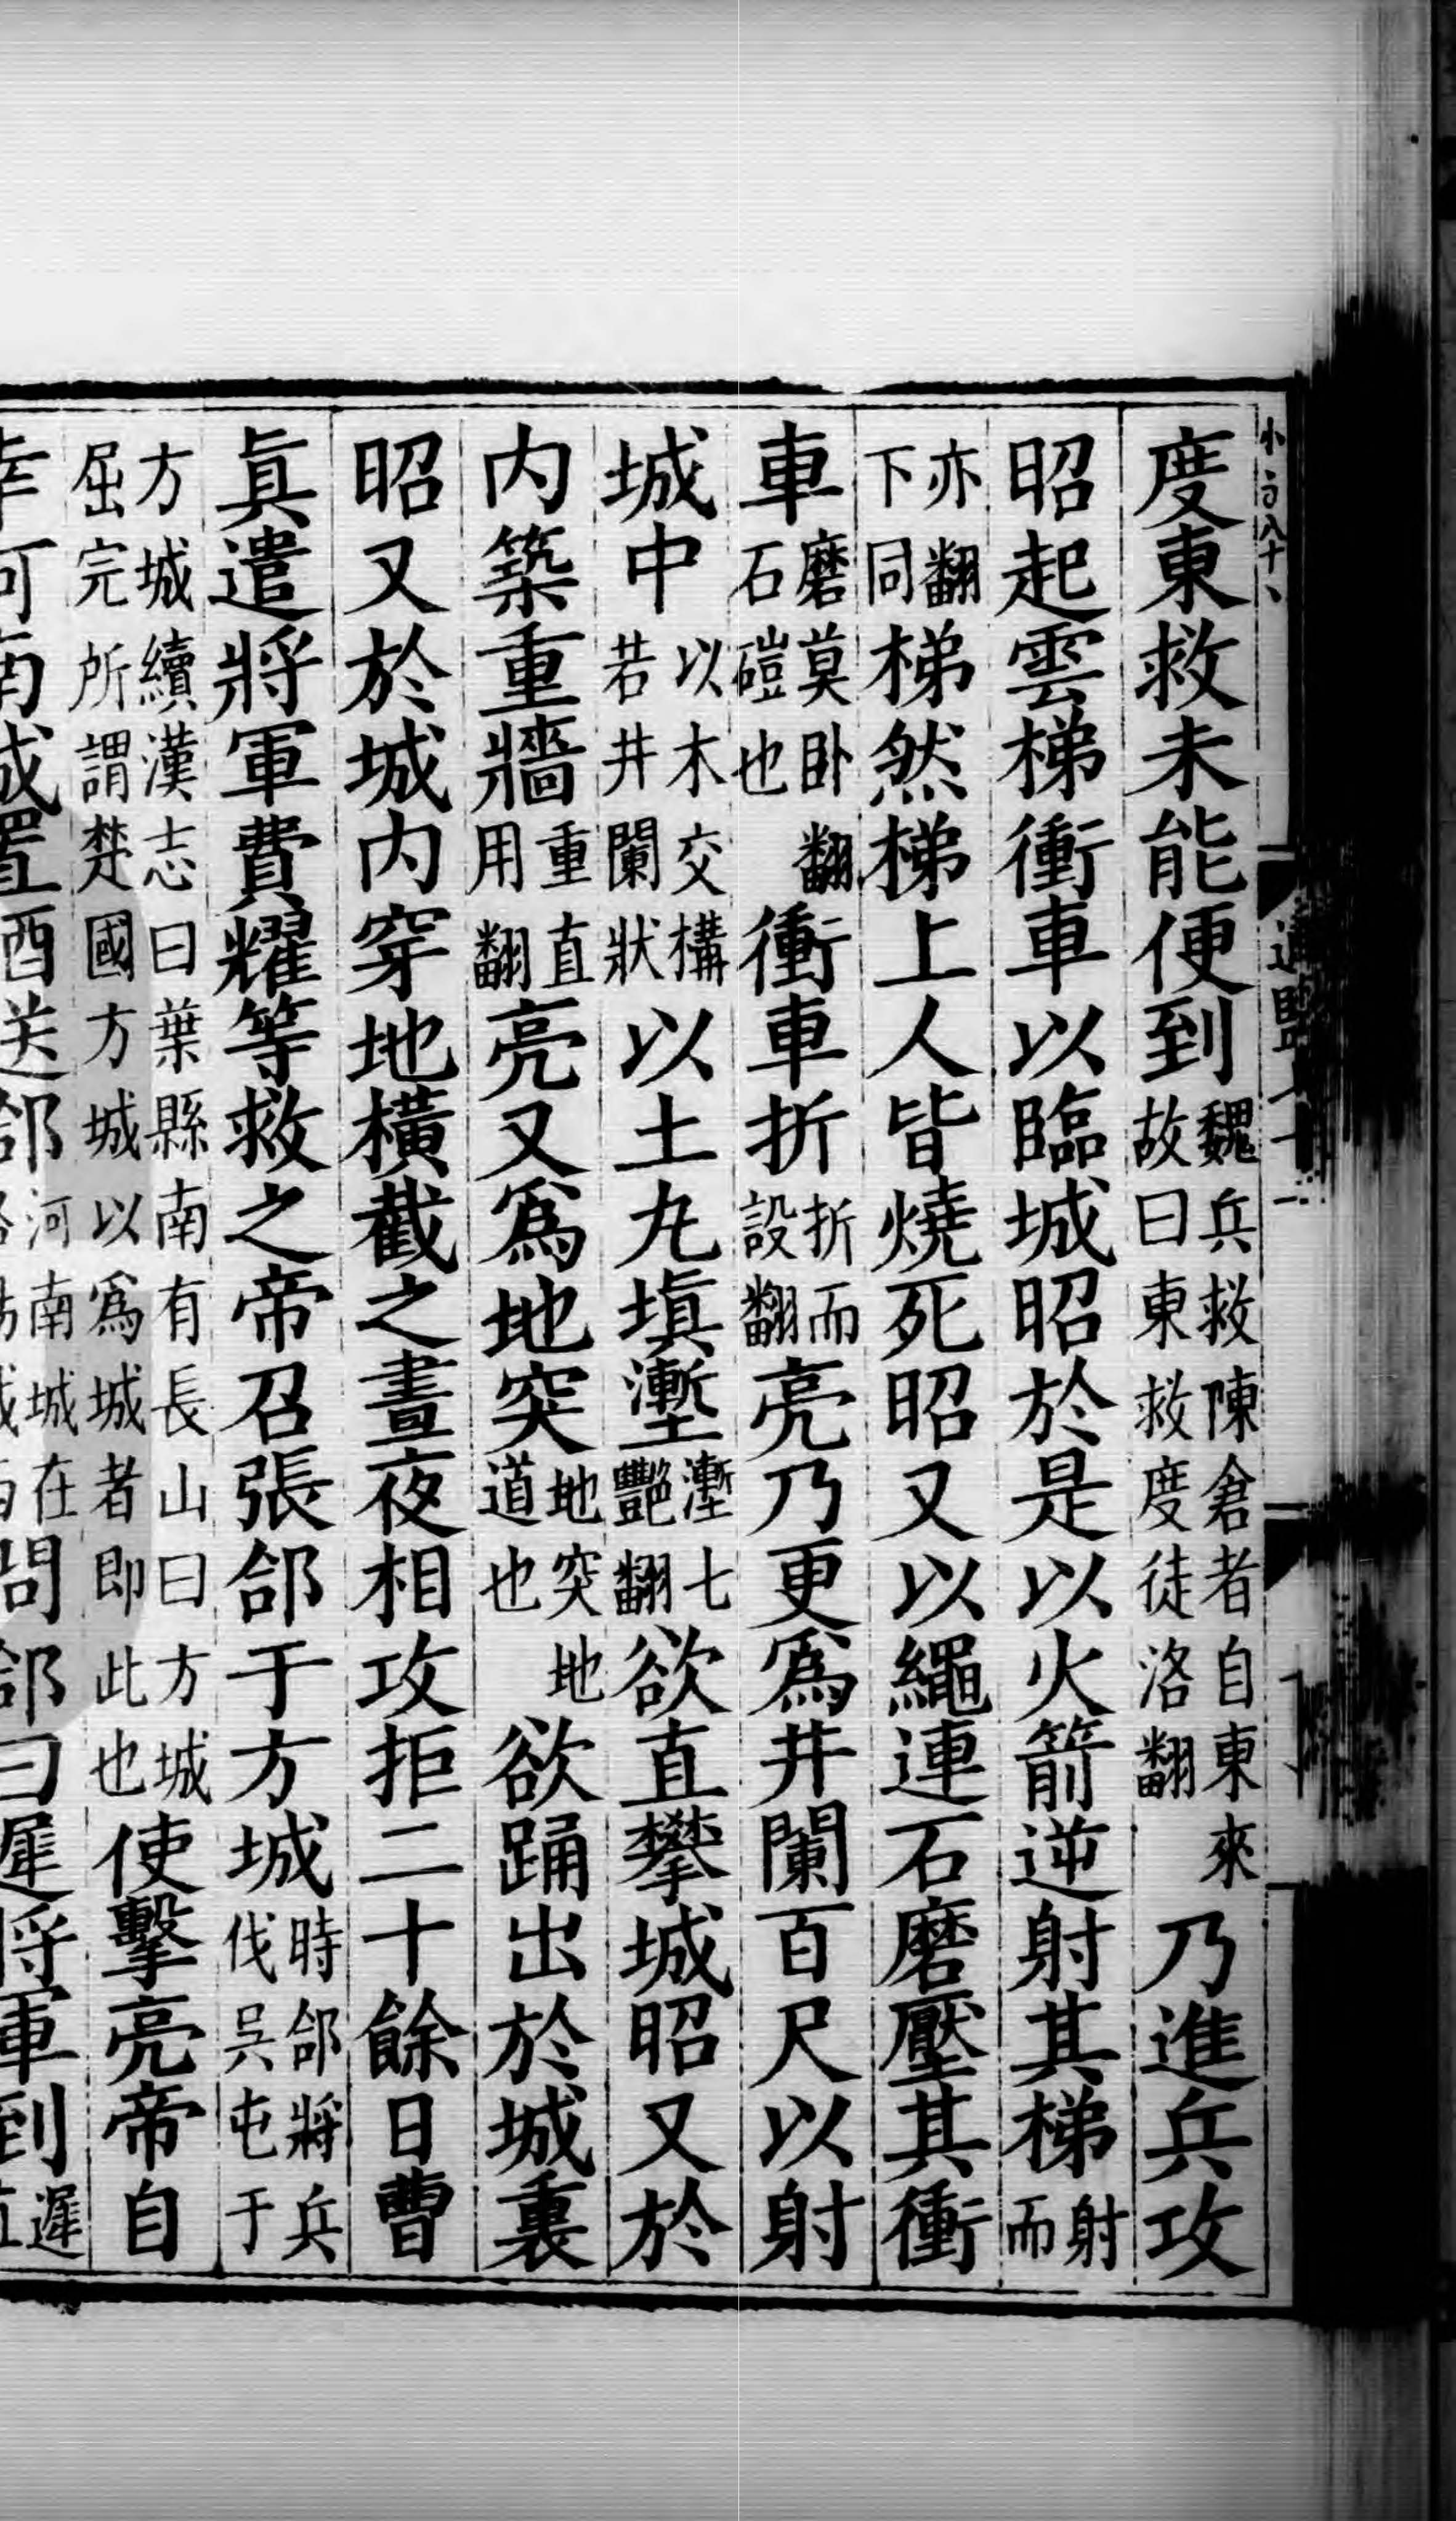 度東救未能便到魏兵救陳倉者自東來故曰東救度徒洛翻乃進兵攻
昭起雲梯衝車以臨城昭於是以火箭逆射其梯射而
亦翻下同梯然梯上人皆燒死昭又以繩連石磨壓其衝
車磨莫卧翻石磑也衝車折折而設翻亮乃更爲井闌百尺以射
城中以木交構若井闌狀以土丸塡壍壍七豔翻欲直攀城昭又於
内築重牆重直用翻亮又爲地突地突地道也欲踊出於城裏
昭又於城内穿地橫截之晝夜相攻拒二十餘日曹
眞遣將軍費耀等救之帝召張郃于方城時郃將兵伐吳屯于
方城續漢志曰葉縣南有長山曰方城屈完所謂楚國方城以爲城者即此也使擊亮帝自
幸河南城置酉送郃河南城在問郃曰遲將軍到遲